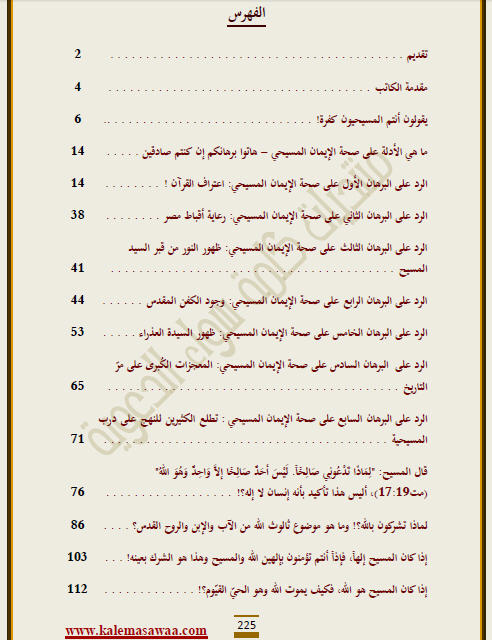 الفهرس
تقديم . . . . . . . . . . . . . . . . . . . . . . . . . . . . . . . . . . . . . . . . 2
مقدمة الكاتب . . . . . . . . . . . . . . . . . . . . . . . . . . . . . . . . . . . . 4
يقولون أنتم المسيحيون كفرة! . . . . . . . . . . . . . . . . . . . . . . . . . . . .. 6
ما هي الأدلة على صحة الإيمان المسيحي – هاتوا برهانكم إن كنتم صادقين . . . . . 14
الرد على البرهان الأول على صحة الإيمان المسيحي: اعتراف القرآن ! . . . . . . . 14
الرد على البرهان الثاني على صحة الإيمان المسيحي: رعاية أقباط مصر . . . . . . . . 38
الرد على البرهان الثالث على صحة الإيمان المسيحي: ظهور النور من قبر السيد
المسيح . . . . . . . . . . . . . . . . . . . . . . . . . . . . . . . . . . . . . . . 41
الرد على البرهان الرابع على صحة الإيمان المسيحي: وجود الكفن المقدس . . . . . . 44
الرد على البرهان الخامس على صحة الإيمان المسيحي: ظهور السيدة العذراء . . . . . 53
الرد على البرهان السادس على صحة الإيمان المسيحي: المعجزات الكُبرى على مرّ
التاريخ . . . . . . . . . . . . . . . . . . . . . . . . . . . . . . . . . . . . . . . 65
الرد على البرهان السابع على صحة الإيمان المسيحي : تطلع الكثيرين للنهج على درب
المسيحية . . . . . . . . . . . . . . . . . . . . . . . . . . . . . . . . . . . . . . 71
قال المسيح: "لِمَاذَا تَدْعُونِي صَالِحًا. لَيْسَ أَحَدٌ صَالِحًا إِلاَّ وَاحِدٌ وَهُوَ اللهُ"
(مت17:19)، أليس هذا تأكيد بأنه إنسان لا إله؟! . . . . . . . . . . . . . . . 76
لماذا تشركون بالله؟! وما هو موضوع ثالوث الله من الآب والإبن والروح القدس؟ . . . . 86
إذا كان المسيح إلهاً، فإذاً أنتم تؤمنون بإلهين الله والمسيح وهذا هو الشرك بعينه! . . . 103
إذا كان المسيح هو الله، فكيف يموت الله وهو الحيّ القيّوم؟! . . . . . . . . . . . . . 112
225
www.kalemasawaa.com